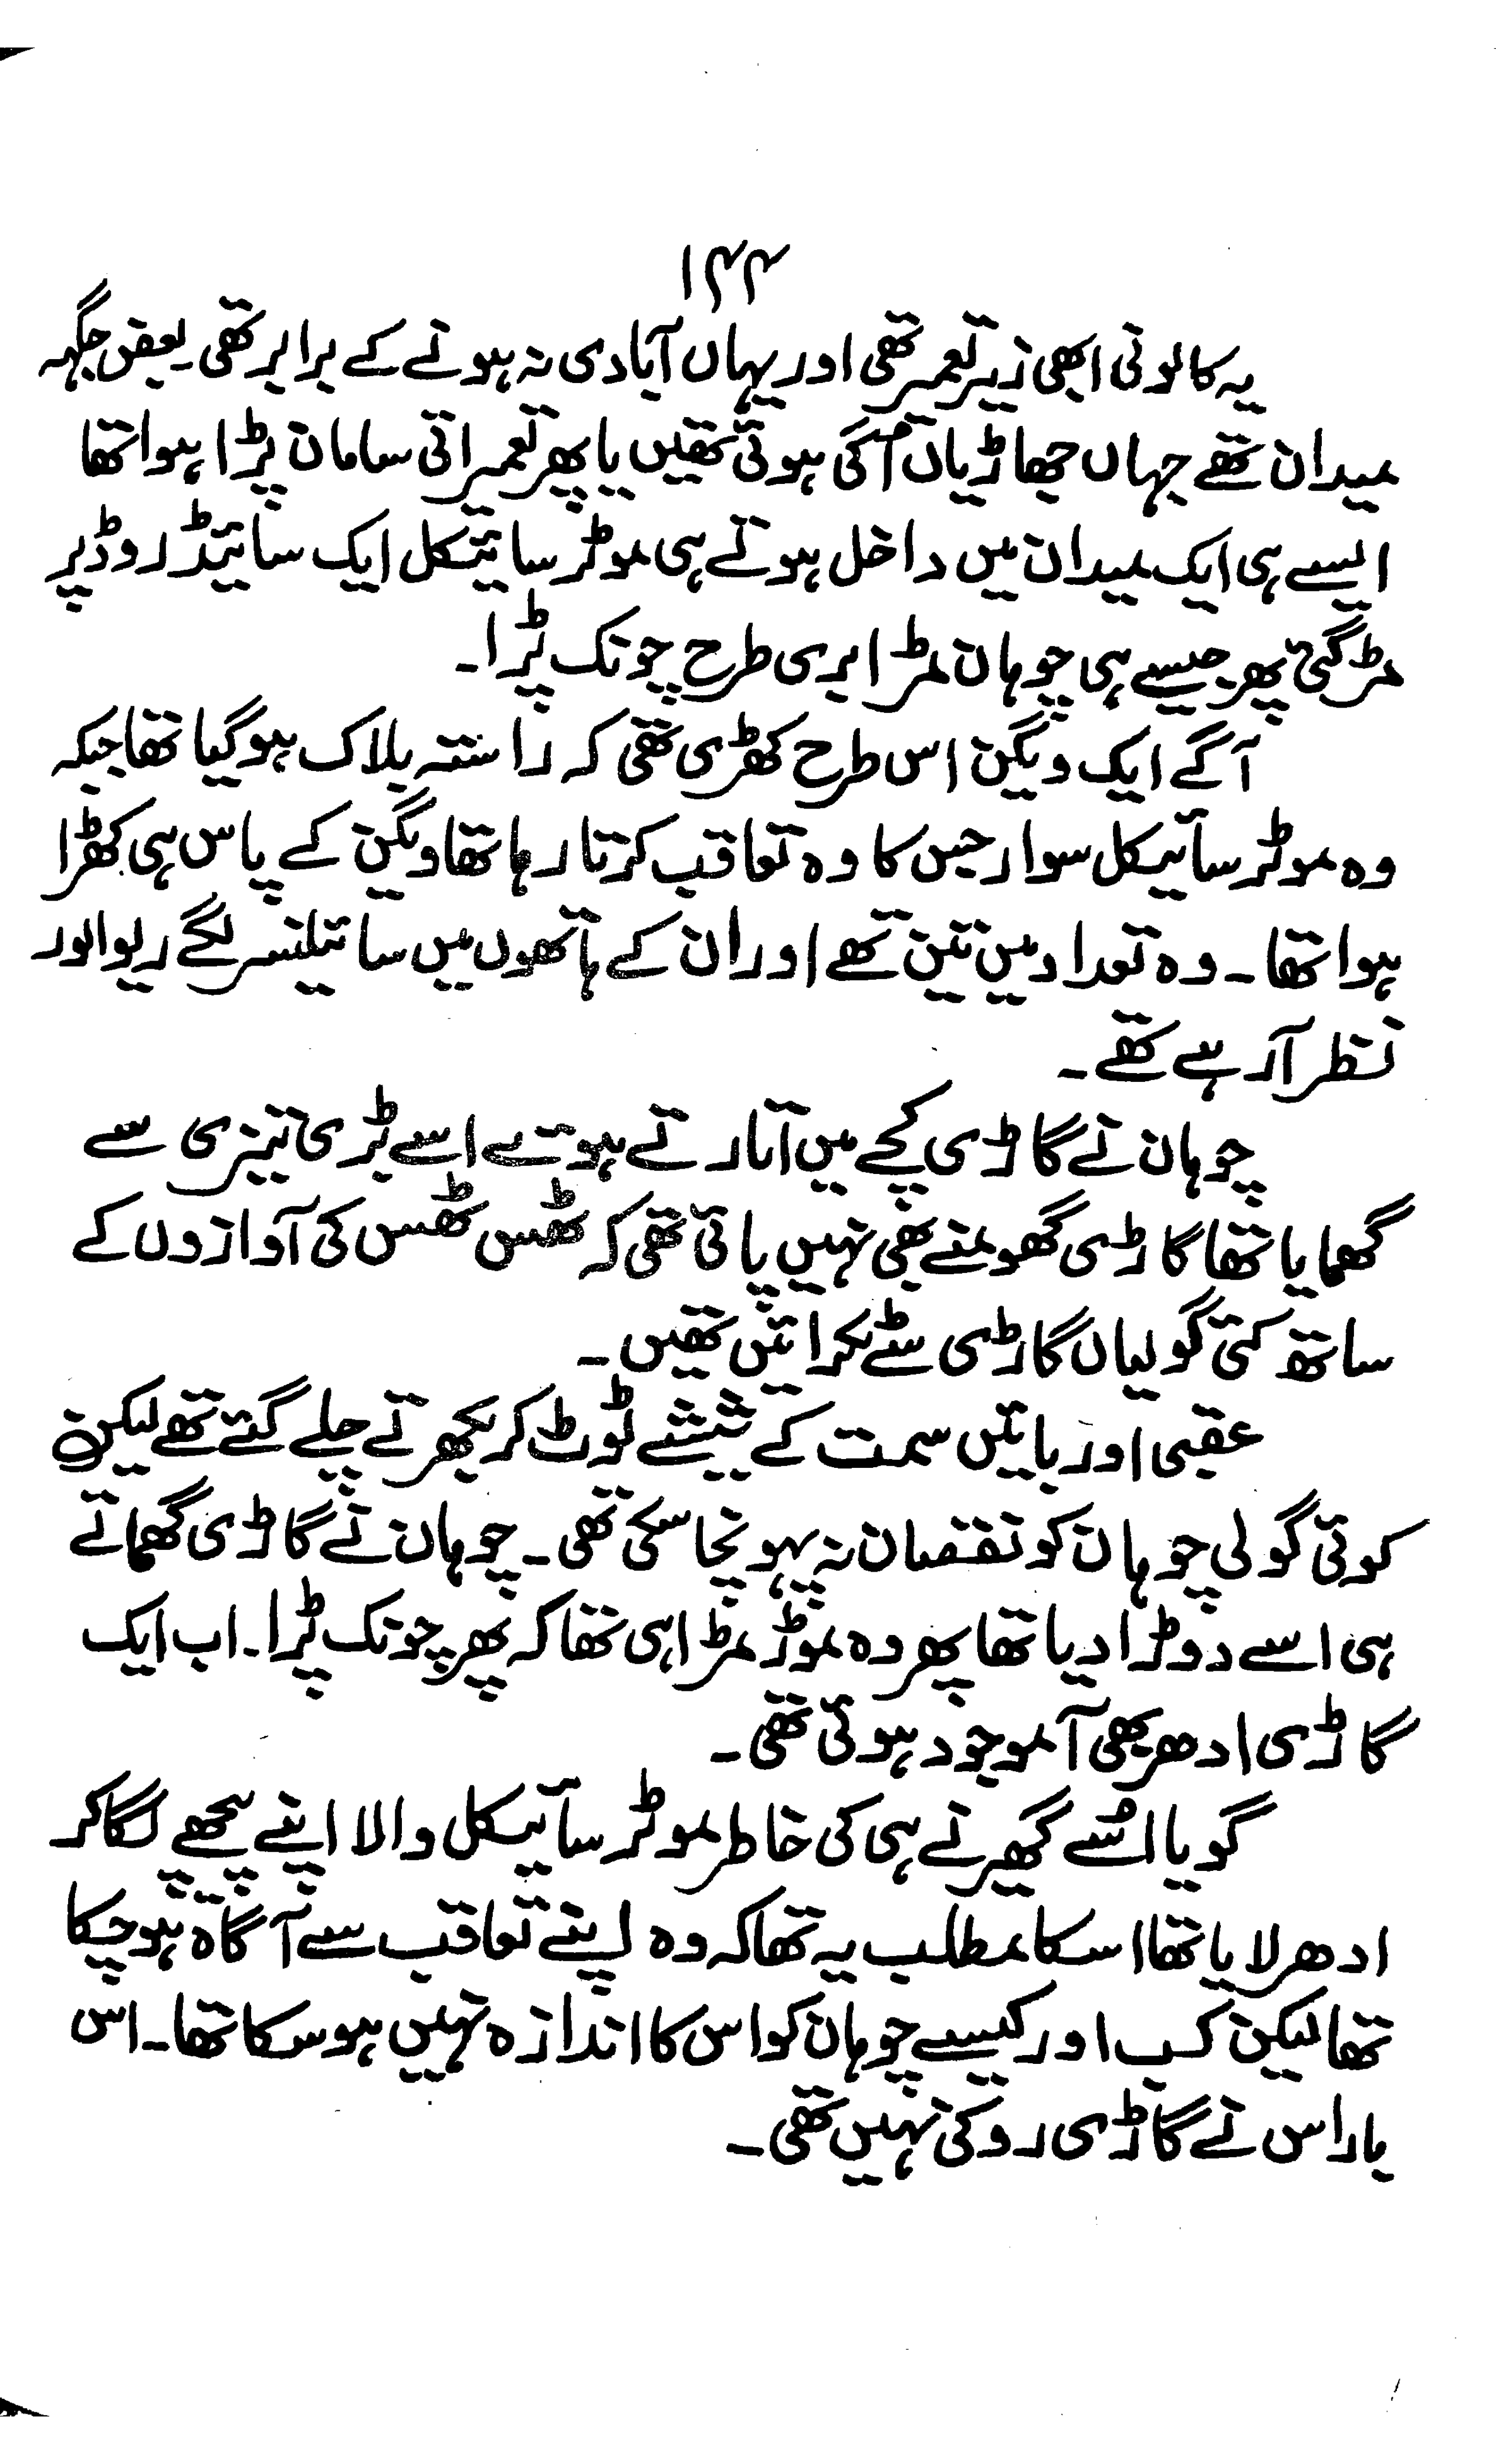 ۱۴۴
یہ کالونی ابھی زیر تعمیر تھی اور یہاں آبادی نہ ہونے کے برابر تھی۔ بعض جگہہ
میدان تھے جہاں جھاڑیاں اگی ہوئی تھیں یا پھر تعمیراتی سامان پڑا ہوا تھا
ایسے ہی ایک میدان میں داخل ہوتے ہی موٹر سائیکل ایک سائیڈ روڈ پر
مڑ گئی پھر جیسے ہی چوہان مڑا بری طرح چونک پڑا۔
آگے ایک ویگن اس طرح کھڑی تھی کہ راستہ بلاک ہو گیا تھا جبکہ
وہ موٹر سائیکل سوار جس کا وہ تعاقب کرتا رہا تھا ویگن کے پاس ہی کھڑا
ہوا تھا۔ وہ تعداد میں تین تھے اور ان کے ہاتھوں میں سائیلنسر لگے ریوالور
نظر آ رہے تھے۔
چوہان نے گاڑی کچے میں اتارتے ہوئے اسے بڑی تیزی سے
گھمایا تھا گاڑی گھومنے بھی نہیں پائی تھی کہ ٹھس ٹھس کی آوازوں کے
ساتھ کئی گولیاں گاڑی سے ٹکرائیں تھیں۔
عقبی اور بائیں سمت کے شیشے ٹوٹ کر بکھرتے چلے گئے تھے لیکن
کوئی گولی چوہان کو نقصان نہ پہونچا سکی تھی۔ چوہان نے گاڑی گھماتے
ہی اسے دوڑا دیا تھا پھر وہ موڑ مڑا ہی تھا کہ پھر چونک پڑا۔ اب ایک
گاڑی ادھر بھی آ موجود ہوئی تھی۔
گویا اُسے گھیرنے ہی کی خاطر موٹر سائیکل والا اپنے پیچھے لگا کر
ادھر لایا تھا اسکا مطلب یہ تھا کہ وہ اپنے تعاقب سے آگاہ ہو چکا
تھا لیکن کب اور کیسے چوہان کو اس کا اندازہ نہیں ہو سکا تھا۔ اس
بار اس نے گاڑی روکی نہیں تھی۔